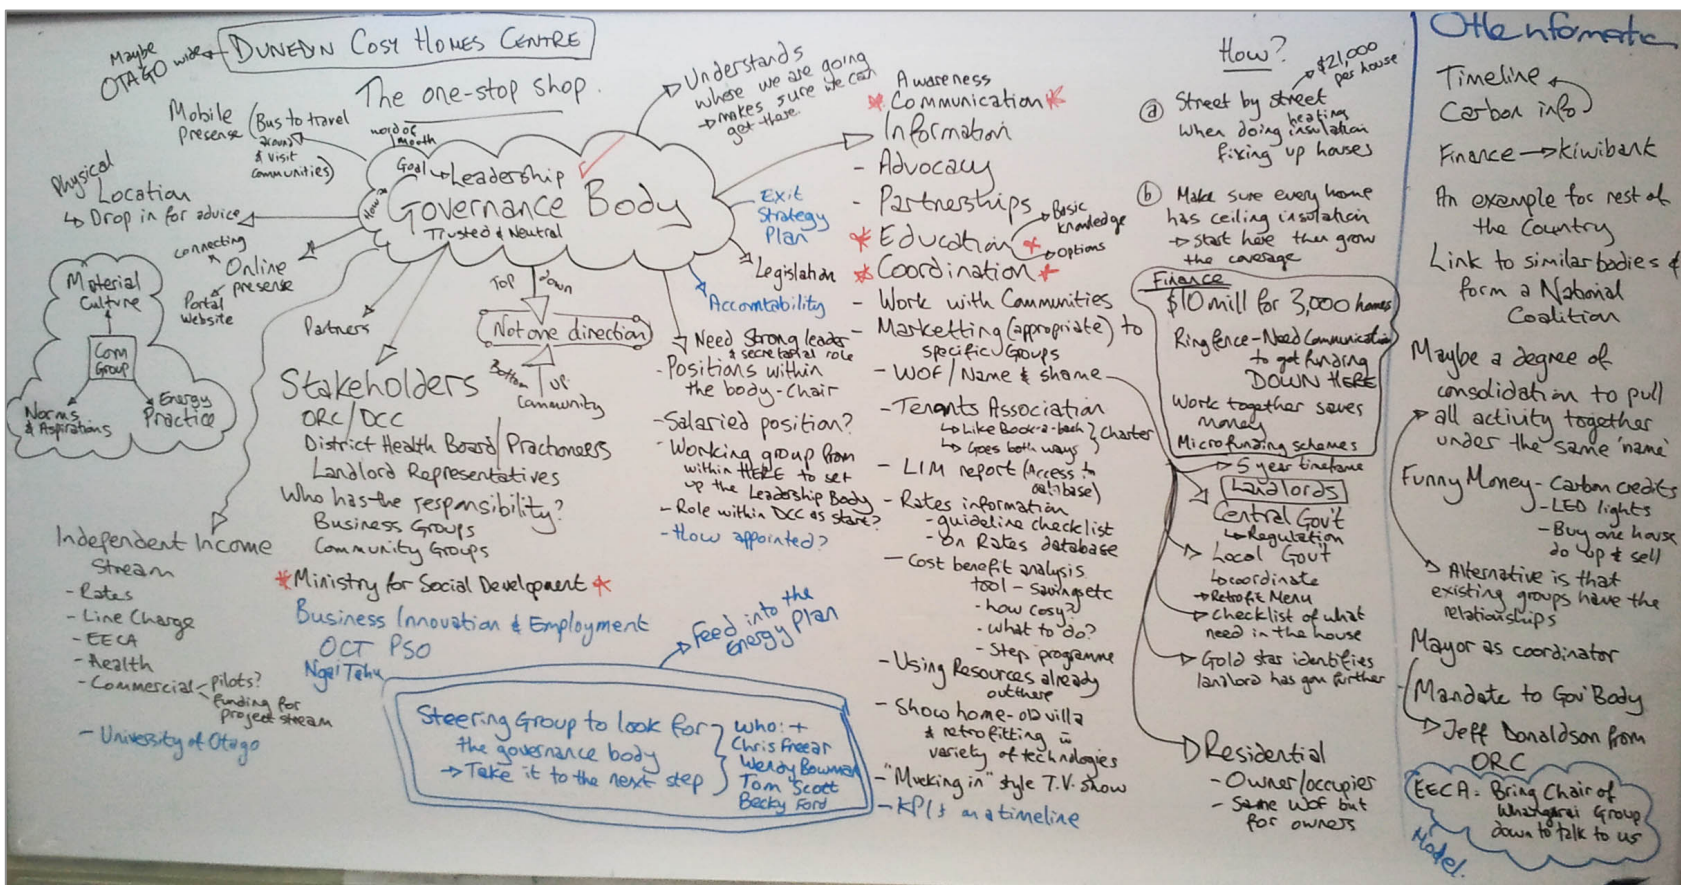 Maybe
OTAGO wide
DUNEDIN COSY HOMES CENTRE
The one-stop shop.
Mobile
presense
(Bus to travel
around
& visit
communities)
Physical
Location
↳ Drop in for advice
connecting
Online
presense
Portal
website
Material
Culture
Com
Group
Norms
& Aspirations
Energy
Practice
word of
mouth
Goal → Leadership
How?
Governance Body
Trusted & Neutral
Understands
where we are going
→ makes sure we can
get there.
Exit
Strategy
Plan
Legislation
Accountability
Partners
Top down
Not one direction
Bottom up
Community
Stakeholders
ORC/DCC
District Health Board/Practioneers
Landlord Representatives
Who has the responsibility?
Business Groups
Community Groups
* Ministry for Social Development *
Business Innovation & Employment
OCT PSO
Ngai Tahu
Independent Income
Stream
- Rates
- Line Charge
- EECA
- Health
- Commercial - pilots?
funding for
project stream
- University of Otago
Need Strong leader
& secretarial role
- Positions within
the body - Chair
- Salaried position?
- Working group from
within HERE to set
up the Leadership Body
- Role within DCC as start?
- How appointed?
Feed into the
Energy Plan
Steering Group to look for
the governance body
→ Take it to the next step
who: +
Chris Freear
Wendy Bowman
Tom Scott
Becky Ford
Awareness
* Communication *
Information
- Advocacy
- Partnerships
* Education *
Basic
knowledge
options
* Coordination *
- Work with Communities
- Marketting (appropriate) to
specific Groups
- WOF/Name & shame
- Tenants Association
↳ Like Book-a-bach
↳ Goes both ways
Charter
- LIM report (Access to
database)
- Rates information
- guideline checklist
- On Rates database
- Cost benefit analysis
tool - savings etc
- how cosy?
- what to do?
- Step programme
- Using Resources already
out there
- Show home - old villa
& retrofitting
variety of technologies
- "Mucking in" style T.V. show
- KPI's on a timeline
How?
$21,000
per house
(a) Street by street
when doing heating
insulation
fixing up houses
(b) Make sure every home
has ceiling insulation
→ Start here then grow
the coverage
Finance
$10 mill for 3,000 homes
Ring fence - Need Communication
to get funding
DOWN HERE
Work together saves
money
Microfunding schemes
5 year timeframe
Landlords
Central Gov't
↳ Regulation
Local Gov't
↳ coordinate
→ Retrofit Menu
Checklist of what
need in the house
Gold star identifies
landlord has gon further
Residential
- Owner/occupier
- Same WOF but
for owners
Timeline
Carbon info
Finance → Kiwibank
An example for rest of
the Country
Link to similar bodies &
form a National
Coalition
Maybe a degree of
consolidation to pull
all activity together
under the same 'name'
Funny Money - Carbon credits
- LED lights
- Buy one house
do up & sell
Alternative is that
existing groups have the
relationships
Mayor as coordinator
Mandate to Gov Body
Jeff Donaldson from
ORC
EECA: Bring Chair of
Whangarai Group
down to talk to us
Model.